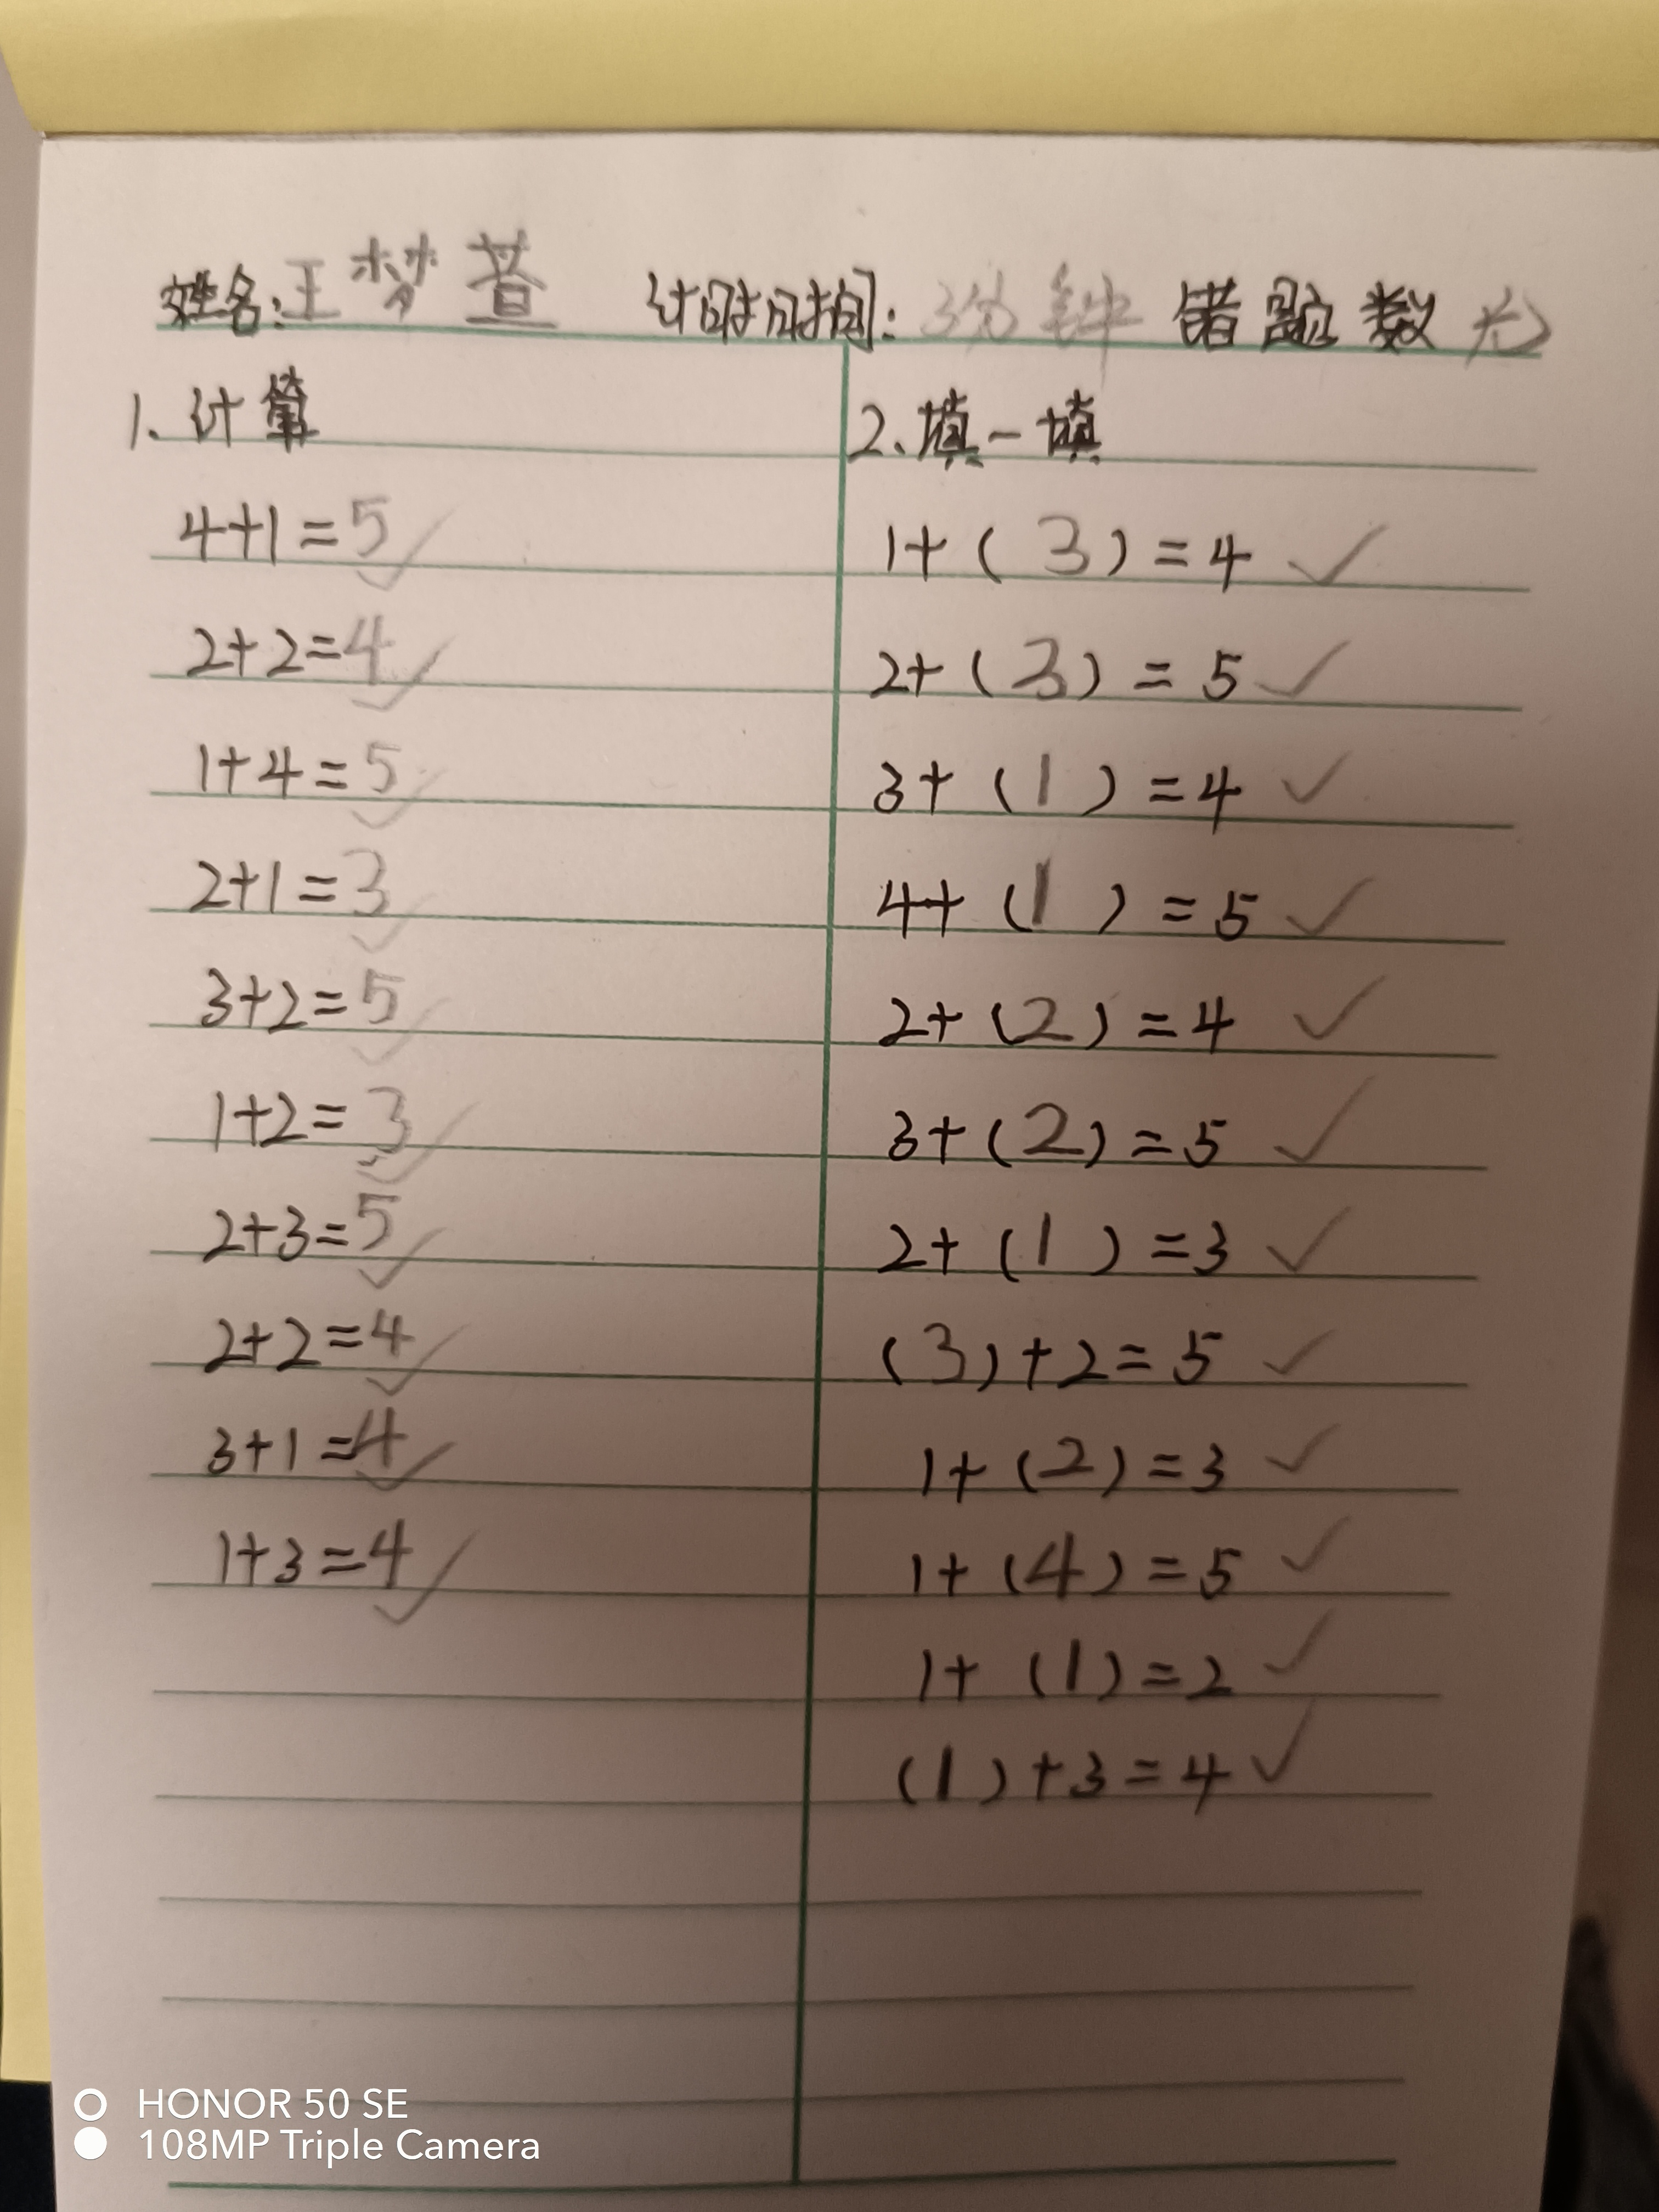 姓名:王梦萱 计时时间:3分钟 错题数 无
1.计算
4+1=5✓
2+2=4✓
1+4=5✓
2+1=3✓
3+2=5✓
1+2=3✓
2+3=5✓
2+2=4✓
3+1=4✓
1+3=4✓
2.填一填
1+(3)=4✓
2+(3)=5✓
3+(1)=4✓
4+(1)=5✓
2+(2)=4✓
3+(2)=5✓
2+(1)=3✓
(3)+2=5✓
1+(2)=3✓
1+(4)=5✓
1+(1)=2✓
(1)+3=4✓
HONOR 50 SE
108MP Triple Camera